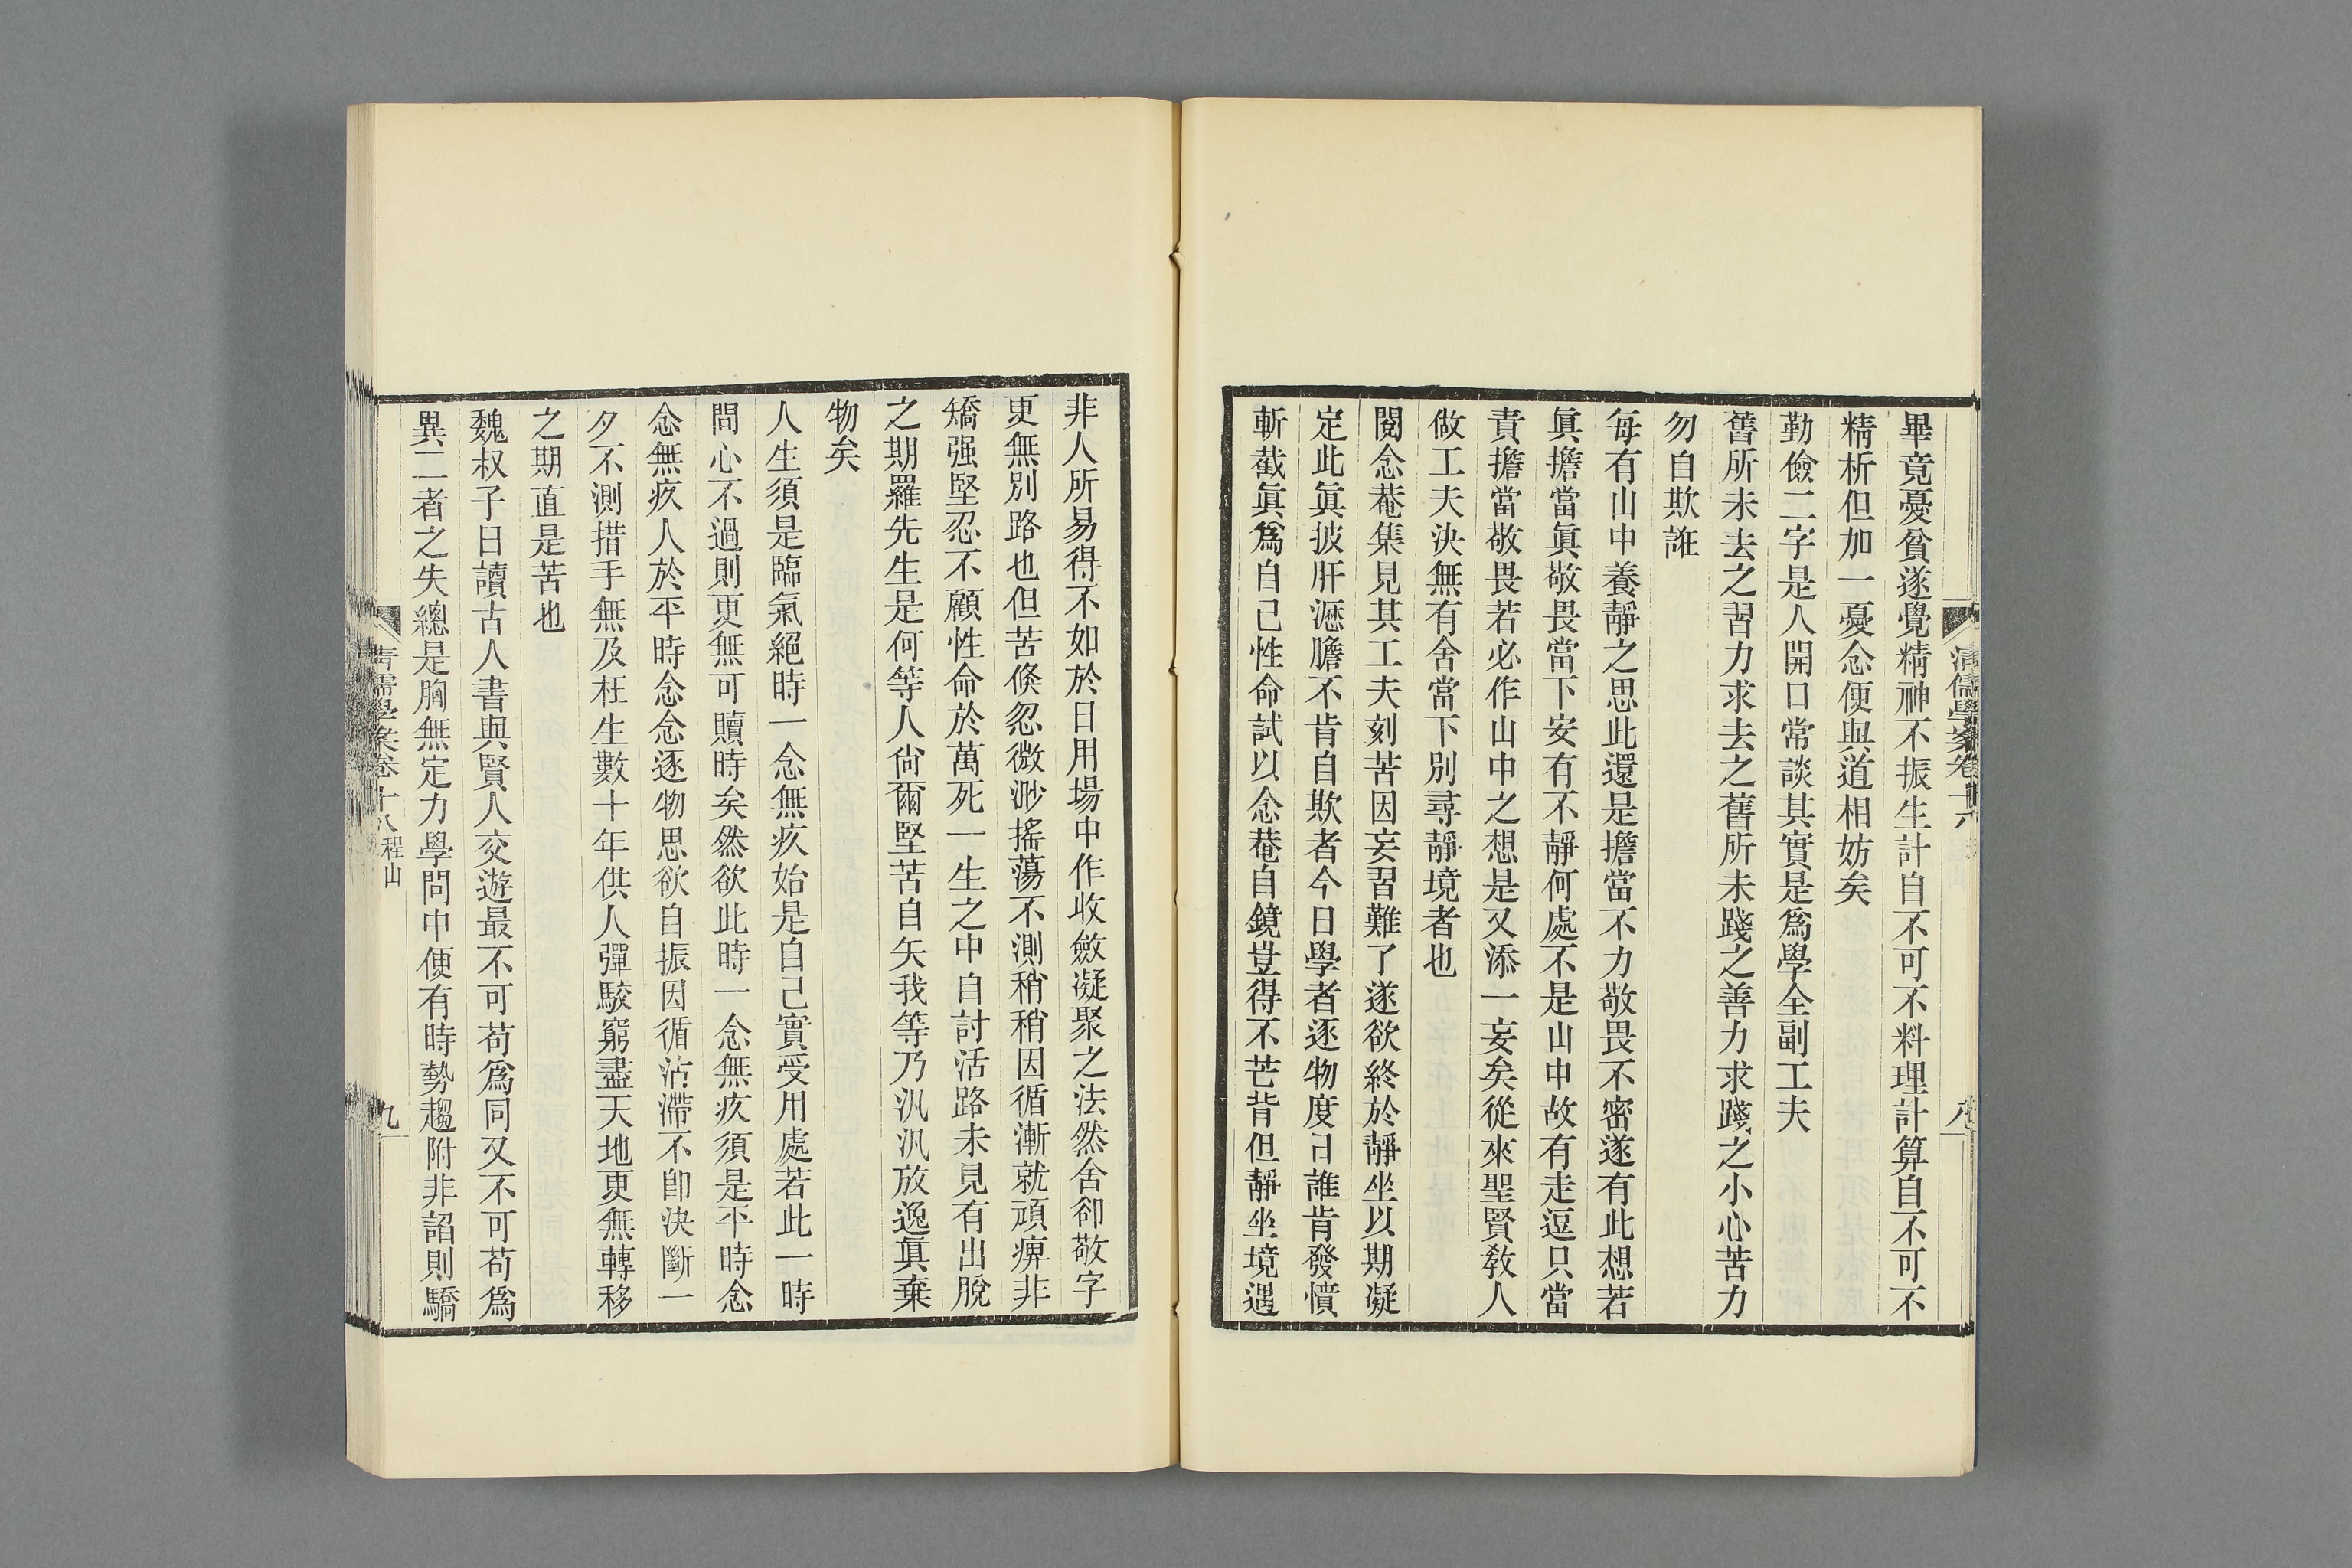 畢竟憂貧遂覺精神不振生計自不可不料理計算自不可不
精析但加一憂念便與道相妨矣
勤儉二字是人開口常談其實是爲學全副工夫
舊所未去之習力求去之舊所未踐之善力求踐之小心苦力
勿自欺誑
每有山中養靜之思此還是擔當不力敬畏不密遂有此想若
眞擔當眞敬畏當下安有不靜何處不是山中故有走逗只當
責擔當敬畏若必作山中之想是又添一妄矣從來聖賢敎人
做工夫決無有舍當下別尋靜境者也
閱念菴集見其工夫刻苦因妄習難了遂欲終於靜坐以期凝
定此眞披肝瀝膽不肯自欺者今日學者逐物度日誰肯發憤
斬截眞爲自己性命試以念菴自鏡豈得不芒背但靜坐境遇
非人所易得不如於日用場中作收斂凝聚之法然舍卻敬字
更無別路也但苦倐忽微渺搖蕩不測稍稍因循漸就頑痹非
矯强堅忍不顧性命於萬死一生之中自討活路未見有出脫
之期羅先生是何等人尙爾堅苦自矢我等乃汎汎放逸眞棄
物矣
人生須是臨氣絕時一念無疚始是自己實受用處若此一時
問心不過則更無可贖時矣然欲此時一念無疚須是平時念
念無疚人於平時念念逐物思欲自振因循沾滯不卽決斷一
夕不測措手無及枉生數十年供人彈駁窮盡天地更無轉移
之期直是苦也
魏叔子曰讀古人書與賢人交遊最不可苟爲同又不可苟爲
異二者之失總是胸無定力學問中便有時勢趨附非諂則驕
清儒學案卷十八程山
九